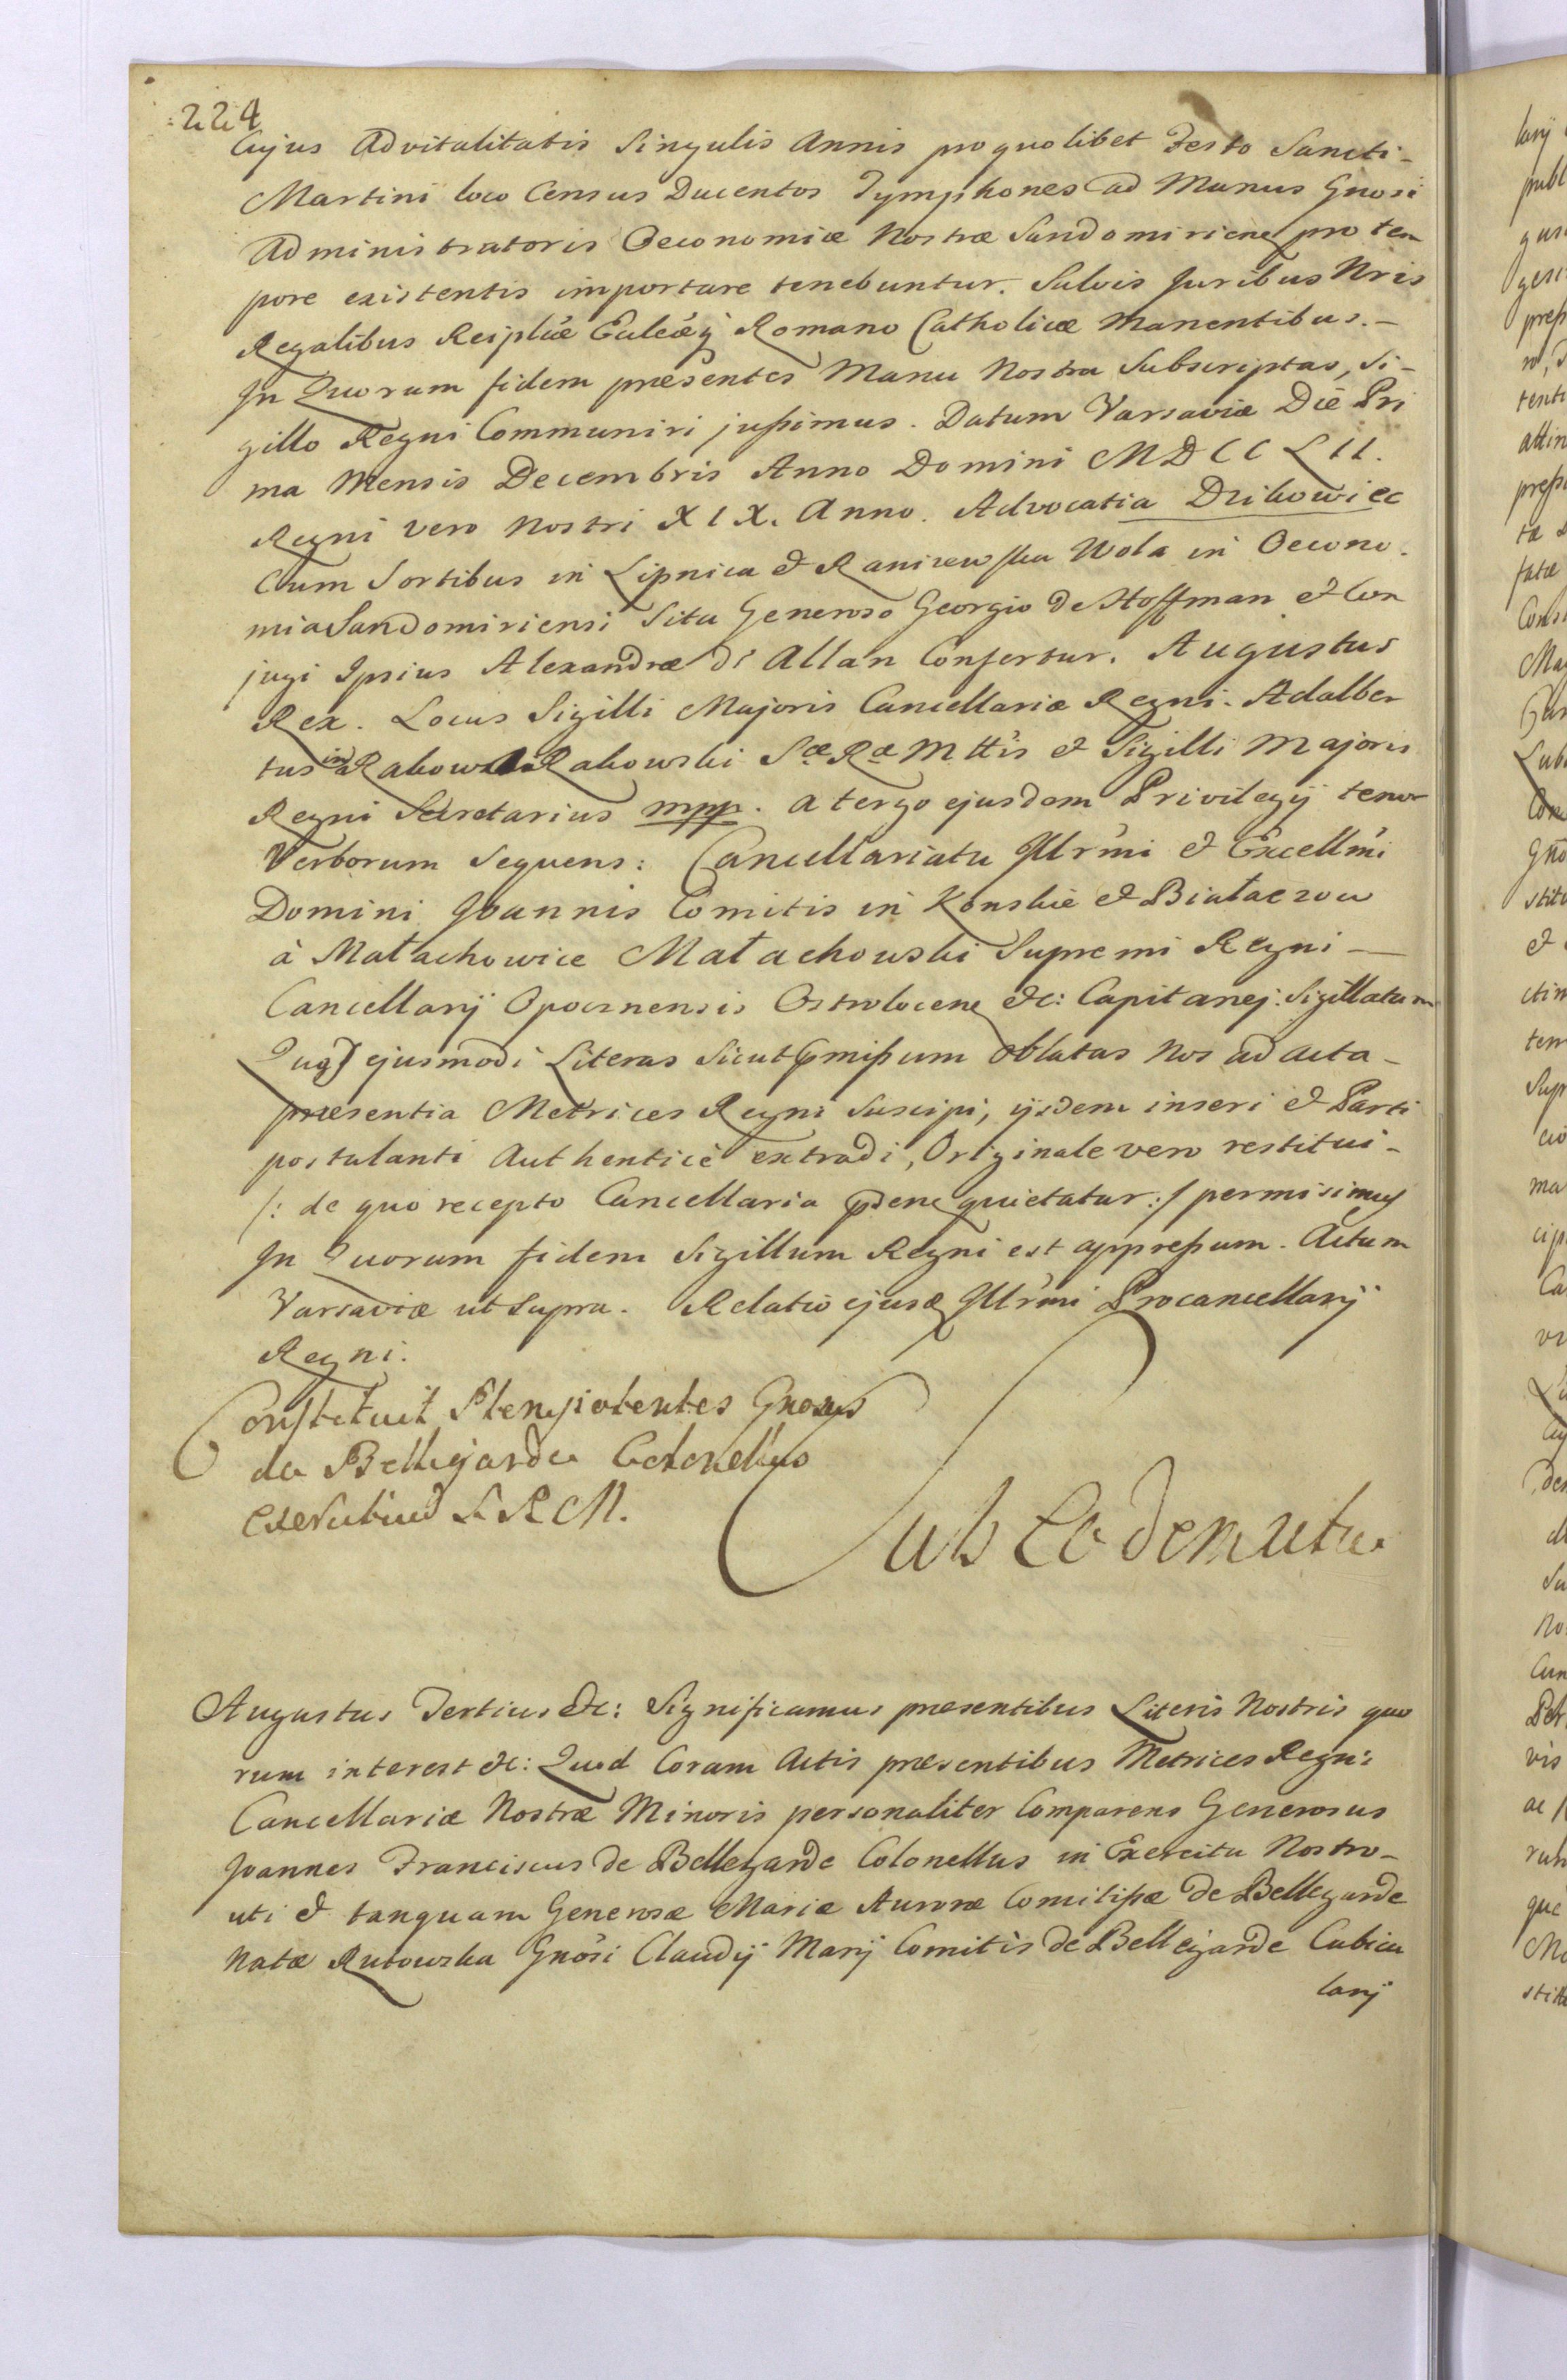 224
Cujus Advitalitatis Singulis Annis pro quolibet Festo Sancti-
Martini loco Census Ducentos Tymphones ad Manus Gnosi
Administratoris Oeconomiæ Nostræ Sandomiriens pro tem
pore existentis importare tenebuntur. Salvis Juribus Nris
Regalibus Reiplcæ Eccleæq Romano Catholicæ Manentibus.-
In Quorum fidem præsentes Manu Nostra Subscriptas, Si-
gillo Regni Communiri jussimus. Datum Varsaviæ Die Pri
ma Mensis Decembris Anno Domini MDCCLII.
Regni vero Nostri XIX. Anno. Advocatia Dzikowiec
Cum Sortibus in Lipnica & Ranizewska Wola in Oecono-
mia Sandomiriensi Sita Generoso Georgio de Hoffman et Con
jugi Ipsius Alexandræ di Allan Confertur. Augustus
Rex. Locus Sigilli Majoris Cancellariæ Regni. Adalber
tus in Rakow Rakowski Sæ Ræ Mttis & Sigilli Majoris
Regni Secretarius mpp. a tergo ejusdem Privilegij tenor
Verborum Sequens: Cancellariatu Illrmi & Excellmi
Domini Joannis Comitis in Konskie & Białaczow
à Małachowice Małachowski Supremi Regni -
Cancellarij Opocznensis Ostrolecens &c: Capitanej. Sigillatum
Quas ejusmodi Literas Sicut pmissum oblatas Nos ad acta-
præsentia Metrices Regni Suscipi, ijsdem inseri & Parti
postulanti Authenticè extradi, Originale vero restitui-
/: de quo recepto Cancellaria pdens quietatur :/ permisimus
In Quorum fidem Sigillum Regni est appressum. Actum
Varsaviæ ut Supra. Relatio ejusd Illrmi Procancellarij
Regni.
Constituit Plenipotentes Gnosus
de Bellegarde Colonellus
S. R. M.
Sub Eodem Actu.
Augustus Tertius &c: Significamus præsentibus Literis Nostris quo
rum interest &c: Quod Coram Actis præsentibus Metrices Regni
Cancellariæ Nostræ Minoris personaliter Comparens Generosus
Joannes Franciscus de Bellegarde Colonellus in Exercitu Nostro-
uti & tanquam Generosæ Mariæ Auroræ Comitissæ de Bellegarde
Natæ Rutowska Gnosi Claudij Marij Comitis de Bellegarde Cubicu
larij